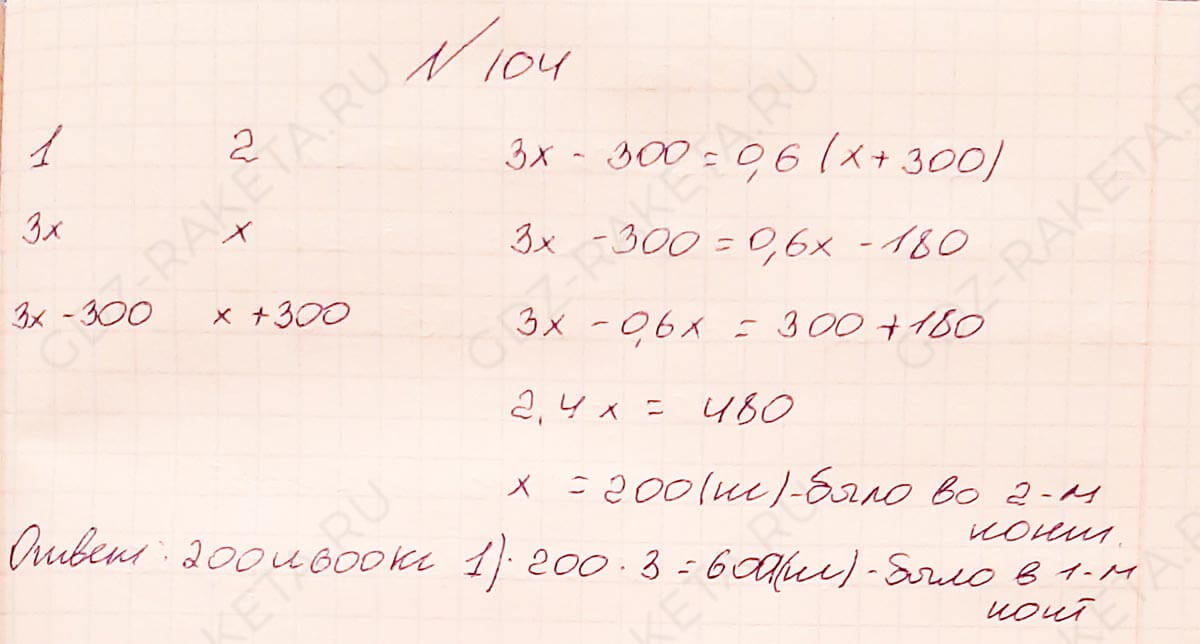 № 104
1 2
3x x
3x - 300 x + 300
3x - 300 = 0,6 (x + 300)
3x - 300 = 0,6x - 180
3x - 0,6x = 300 + 180
2,4x = 480
x = 200 (кг) - было во 2-м
конт.
Ответ: 200 и 600 кг 1) 200 · 3 = 600 (кг) - было в 1-м
конт
GDZ-RAKETA.RU